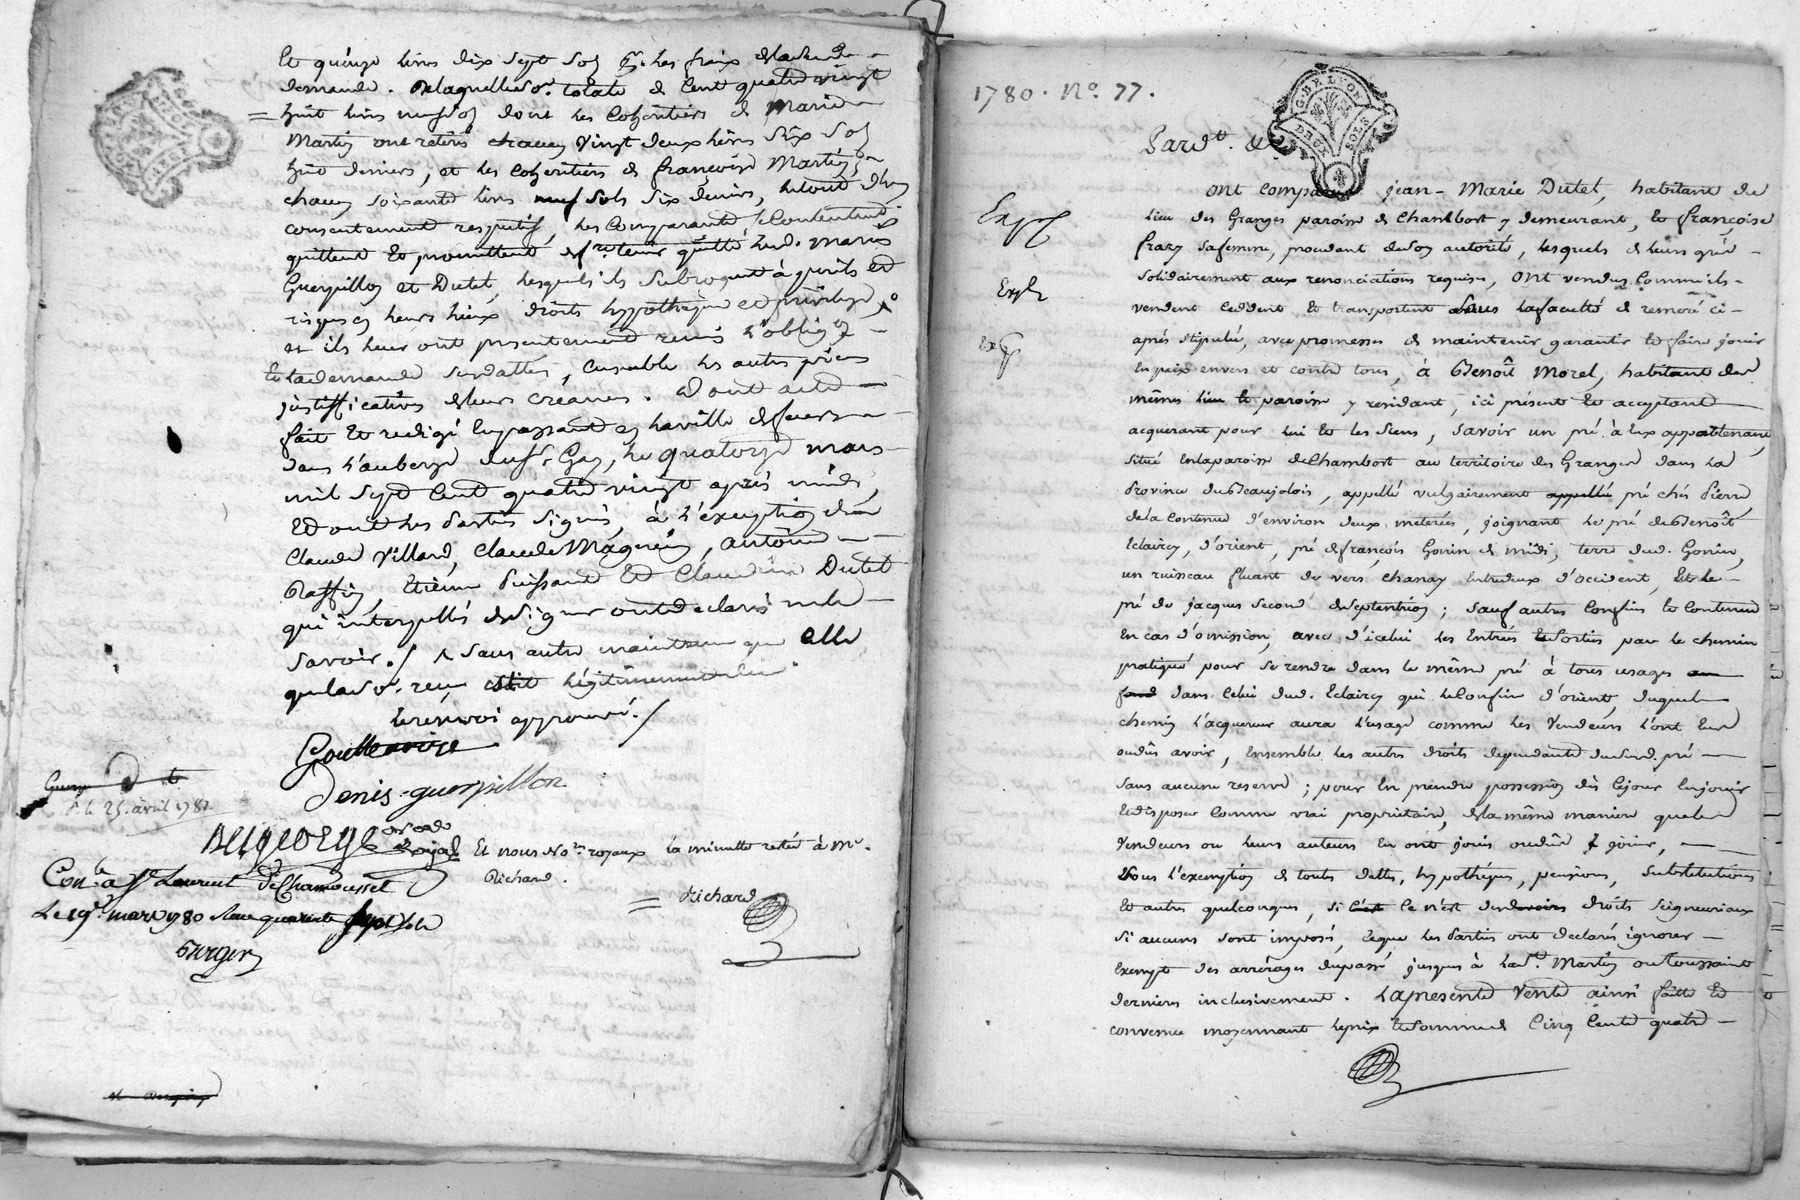 et quinze livres dix sept sols pr. les fraix de lade.
demande. De laquelle so. totale de cent quatre vingt
huit livres neuf sols dont les cohéritiers de Marie
Martin ont retiré chacun vingt deux livres six sols
huit deniers, et les cohéritiers de françoise Martin
chacun soixante livres neuf sols six deniers, le tout de leur
consentement respectif, les comparants se contentent
quittent et promettent de fe. tenir quitte lesd. mariés
Guerpillon et Dutel, lesquels ils subrogent à périls et
risques en leurs lieux droits hypothèque et privilège
et ils leur ont présentement remis l'obligon
et la demande susdattés, ensemble les autres pièces
justifficatives de leurs créances. Dont acte
fait et redigé en passant en la ville de feurs
dans l'auberge du sr. Gay, le quatorze mars
mil sept cent quatre vingt après midi,
et ont les parties signé, à l'exception de
Claude Villard, Claude Magnein, antoine
Raffin, Etienne Puissant et Claudine Dutel
qui interpellés de signer ont déclaré ne le
savoir. / sans autre maintenue que elle
que lad. so. reçue étoit légitimement due
le renvoi approuvé. /
Denis-guerpillon
P. le 25. avril 1782
Et nous No.res royaux la minutte restée à Me.
Richard.
Con.lé à St. Laurent De Chamousset
Richard
Le 19. mars 1780 Reçu quarante sept sols
1780. No. 77.
G. DE LYON
DEUX SOLS
Pardt. &
ont comparu jean-Marie Dutel, habitant du
Exp
lieu des Granges paroisse de Chambost y demeurant, et françoise
frary sa femme, procédant de son autorité, lesquels de leurs gré
Exp
solidairement aux renonciations requises, ont vendu comme ils
vendent cèddent et transportent sous la faculté de réméré ci-
Exp
après stipulé, avec promesses de maintenir garantir et faire jouir
en paix envers et contre tous, à Benoît Morel, habitant du
mêmes lieu et paroisse y résidant, ici présent et acceptant
acquérant pour lui et les siens, savoir un pré à eux appartenant,
situé en la paroisse de Chambost au territoire des Granges dans la
Province du Beaujolois, appellé vulgairement appellé pré chés Pierre
de la contenue d'environ deux méterées, joignant le pré de Benoît
Eclaircy, d'orient, pré de françois Gonin de midi, terre dud. Gonin,
un ruisseau fluant de vers chanay entredeux d'occident, et le
pré de jacques second de septentrion; sauf autres confins et contenue
en cas d'omission, avec d'icelui les entrées et sorties par le chemin
pratiqué pour se rendre dans le même pré à tous usages
dans celui dud. Eclaircy qui le confine d'orient, duquel
chemin l'acquéreur aura l'usage comme les vendeurs l'ont eu
ou dûs avoir, ensemble les autres droits dépendants du susd. pré
sans aucune réserve; pour en prendre possession dès ce jour en jouir
et disposer comme vrai propriétaire, de la même manière que les
vendeurs ou leurs auteurs en ont joui ou dûs jouir,
sous l'exemption de touts dettes, hypothèques, pensions, substitutions
et autres quelconques, si ce n'est des droits seigneuriaux
si aucuns sont imposés, ce que les parties ont déclaré ignorer
exempt des arrérages du passé jusques à la St. Martin ou Toussaint
derniers inclusivement. La présente vente ainsi faitte et
convenue moyennant le prix et somme de cinq cents quatre